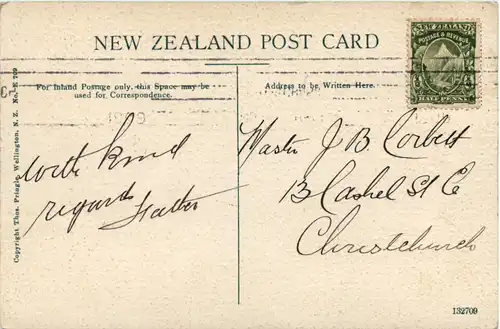 NEW ZEALAND POST CARD
NEW ZEALAND
POSTAGE & REVENUE
HALF PENNY
For Inland Postage only, this Space may be
used for Correspondence.
Address to be Written Here.
With kind
regards
Master J B Corbett
13 Cashel St E
Christchurch
Copyright Thos. Pringle, Wellington, N. Z.
132709